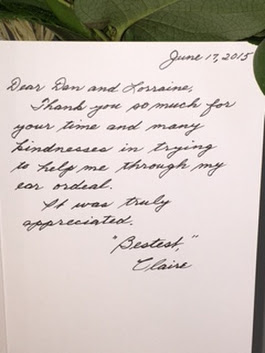 June 17, 2015
Dear Dan and Lorraine,
Thank you so much for
your time and many
kindnesses in trying
to help me through my
ear ordeal.
It was truly
appreciated.
"Bestest,"
Claire